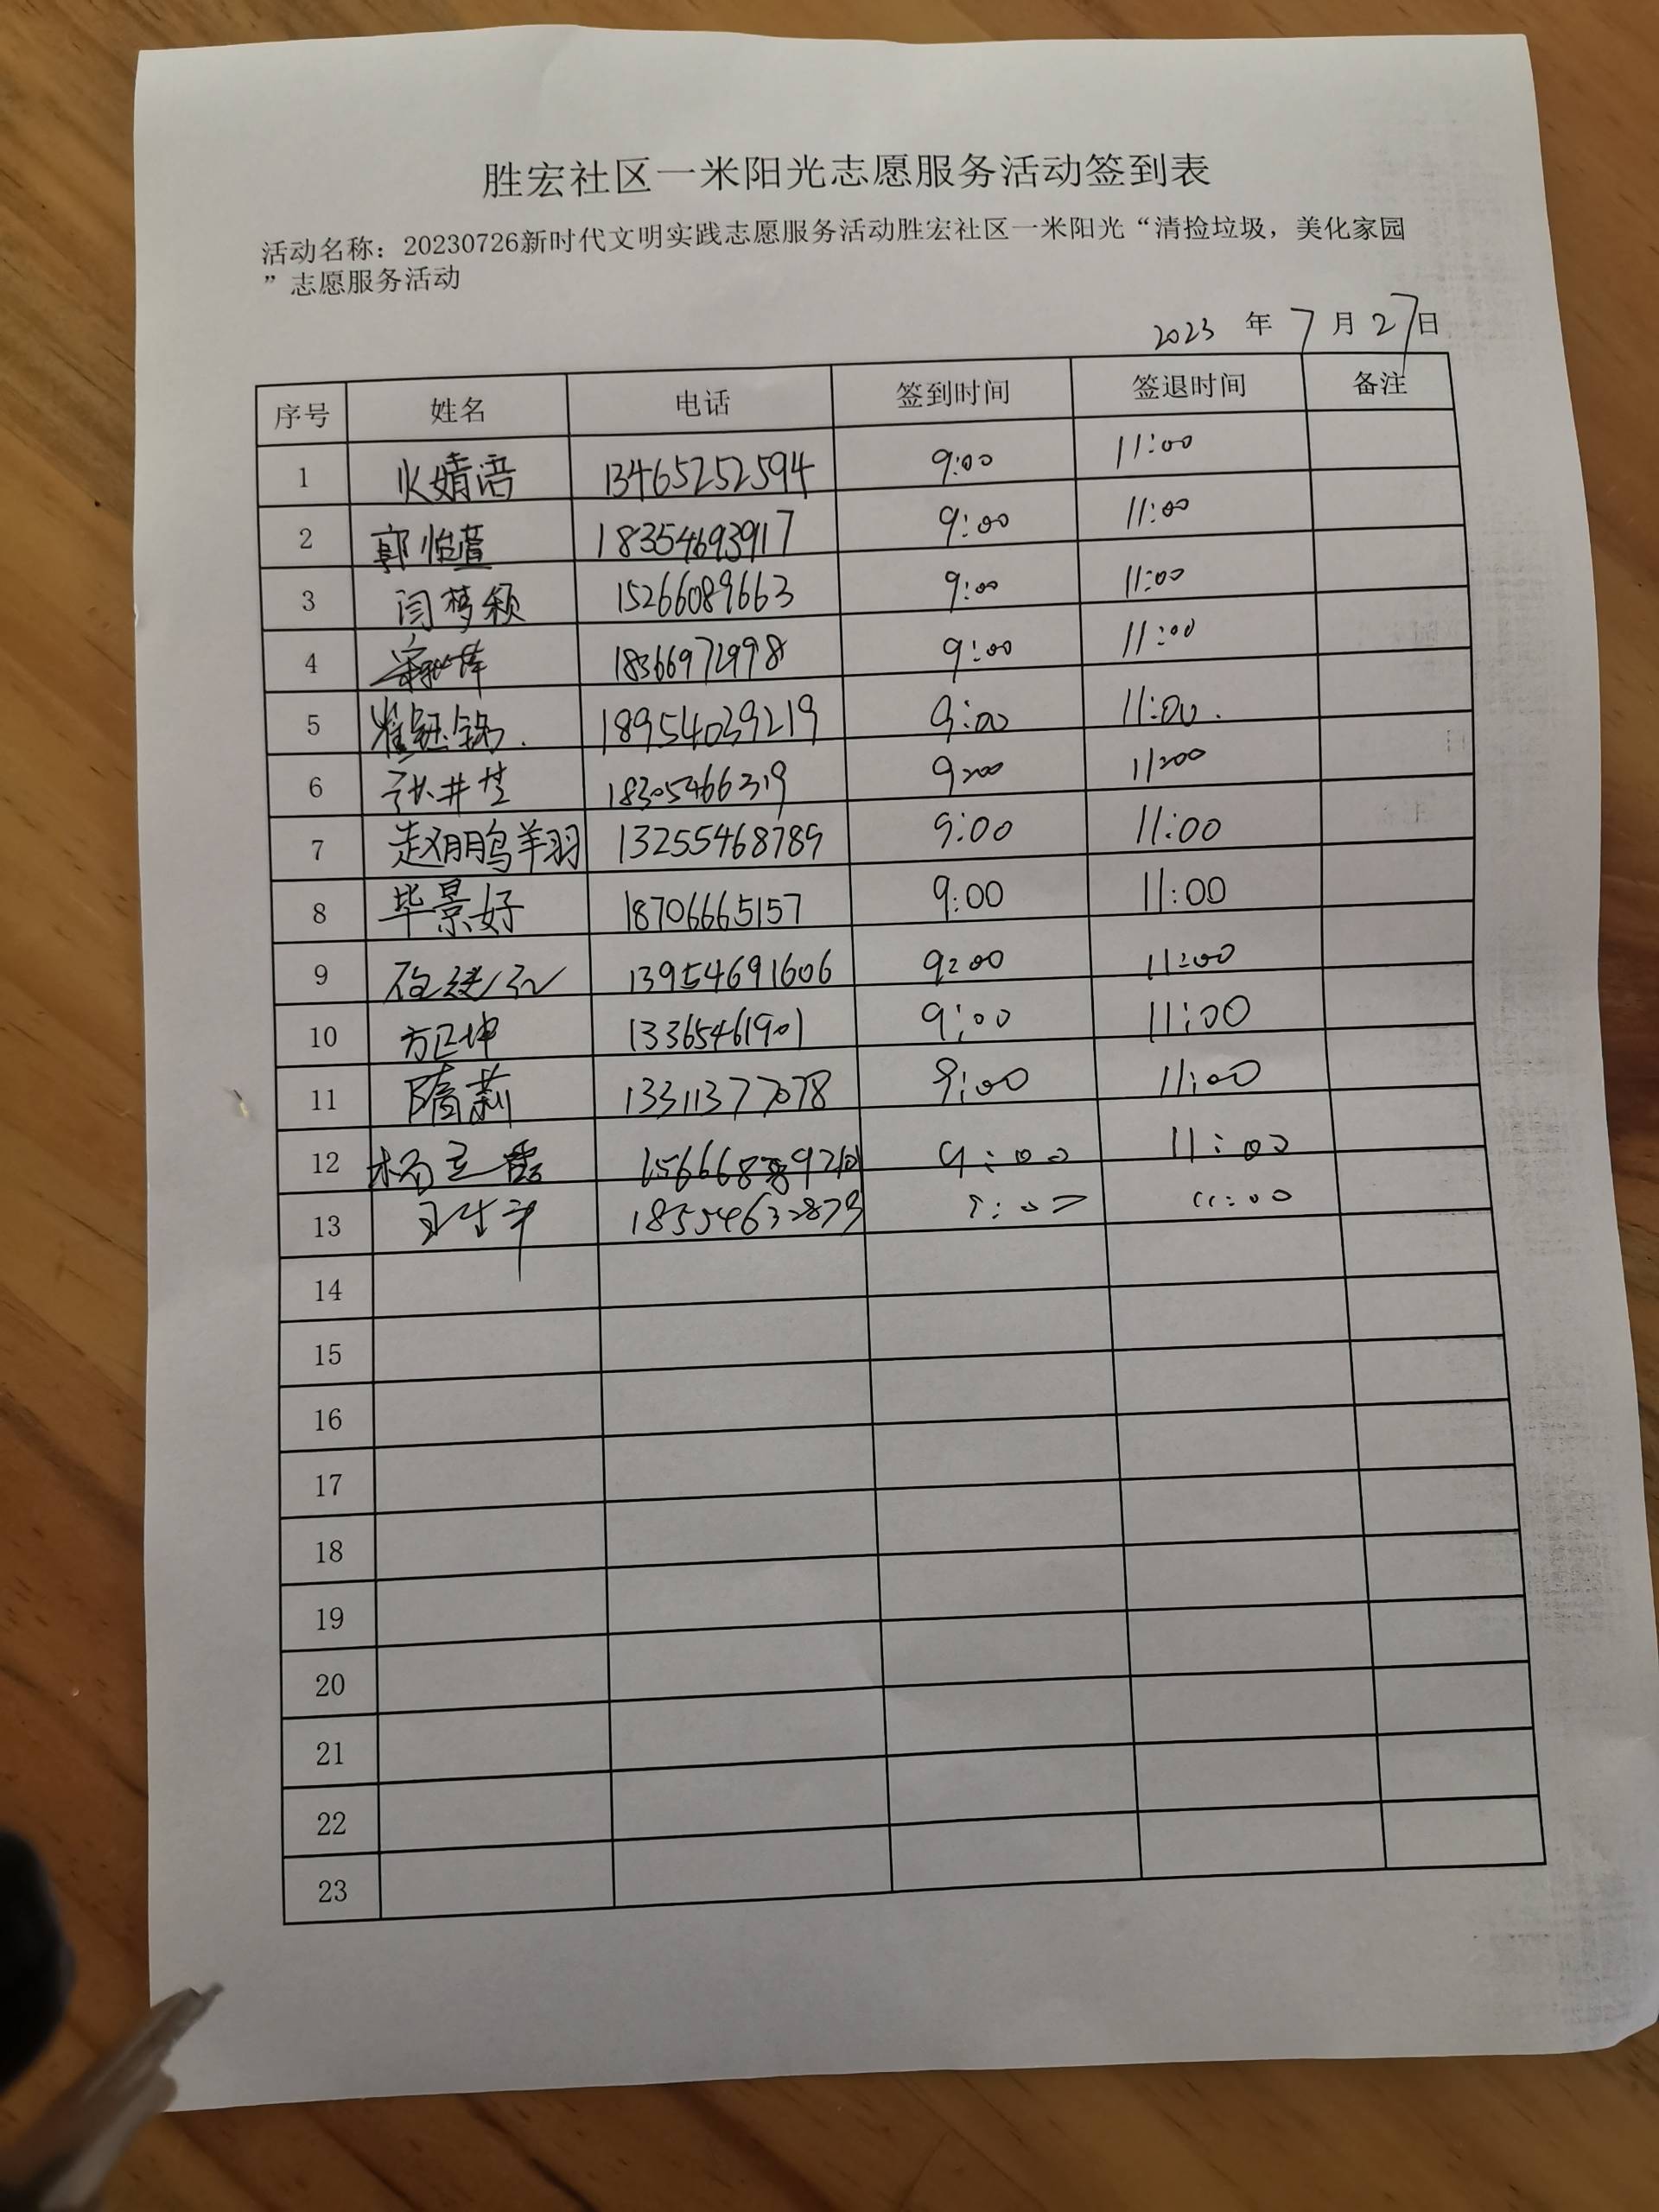 胜宏社区一米阳光志愿服务活动签到表
活动名称：20230726新时代文明实践志愿服务活动胜宏社区一米阳光“清捡垃圾，美化家园
”志愿服务活动
2023 年 7 月 27 日
序号 姓名 电话 签到时间 签退时间 备注
1 火婧语 13465252594 9:00 11:00
2 郭怡萱 18354693917 9:00 11:00
3 闫梦颖 15266089663 9:00 11:00
4 18366972998 9:00 11:00
5 崔钰锦 18954039219 9:00 11:00
6 张井芝 18305466319 9:00 11:00
7 赵鹏翔 13255468789 9:00 11:00
8 毕景好 18706665157 9:00 11:00
9 13954691606 9:00 11:00
10 方正坤 13365461901 9:00 11:00
11 隋莉 13311377078 9:00 11:00
12 杨立霞 9:00 11:00
13 18554632879 9:00 11:00
14
15
16
17
18
19
20
21
22
23